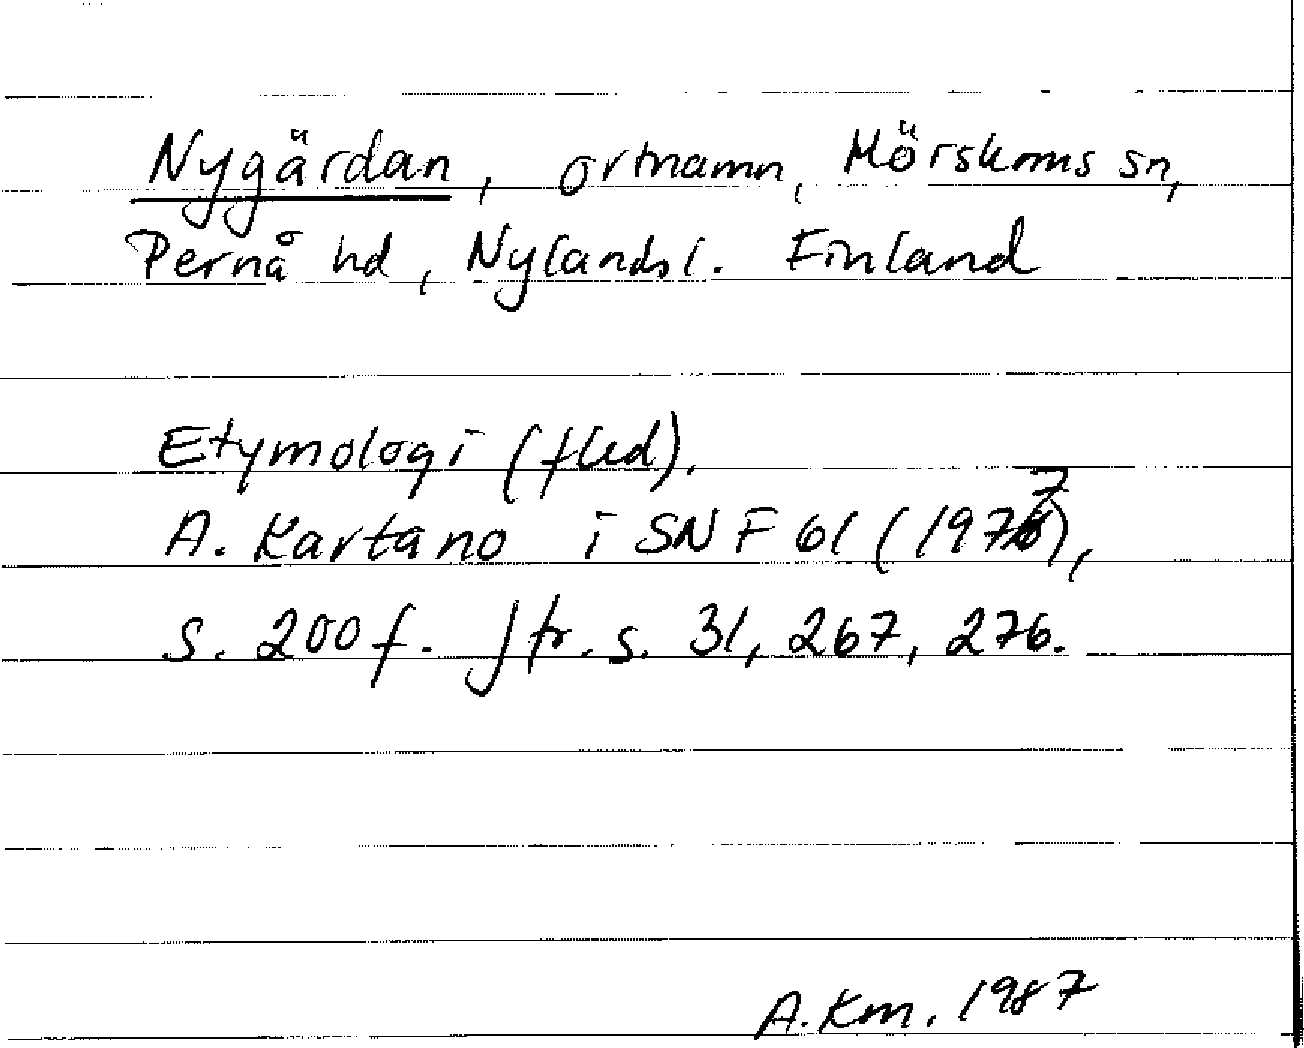 Nygärdan, ortnamn, Mörskoms sn,
Pernå hd, Nylands l. Finland
Etymologi (fled).
A. Kartano i SNF 61 (1977),
s. 200 f. Jfr. s. 31, 267, 276.
A. Km. 1987